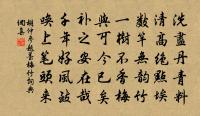 洗盡丹青料
清高絕點埃
數竿無韻竹
一樹不香梅
與可今已矣
補之安在哉
千年好風致
喚上筆頭來
胡仲參題墨梅竹